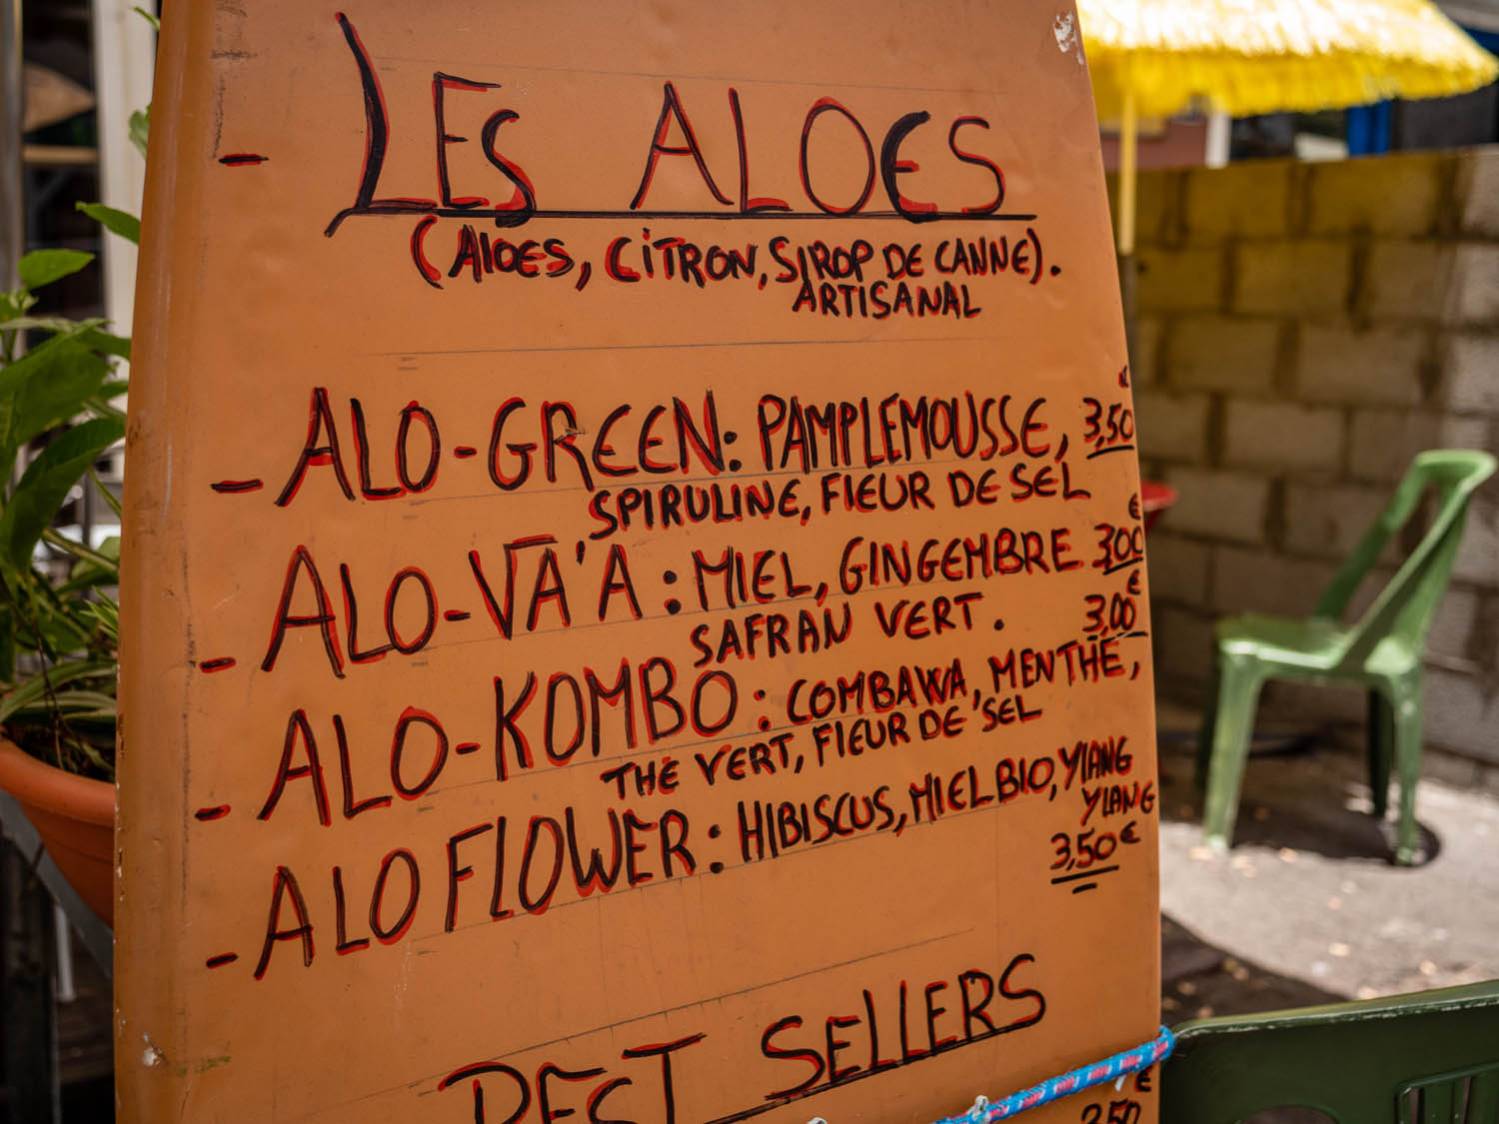 - LES ALOES
(AlOES, CiTRON, SIROP DE CANNE).
ARTISANAL
- ALO-GREEN: PAMPLEMOUSSE, 3,50 €
SPIRULINE, FlEUR DE SEL
- ALO-VA'A : MIEL, GINGEMBRE 3,00 €
SAFRAN VERT. 3,00 €
- ALO-KOMBO : COMBAWA, MENTHE,
THE VERT, FlEUR DE SEL
- ALO FlOWER: HIBISCUS, MIEL BIO, YlANG
YLANG
3,50 €
BEST SELLERS
3,50 €